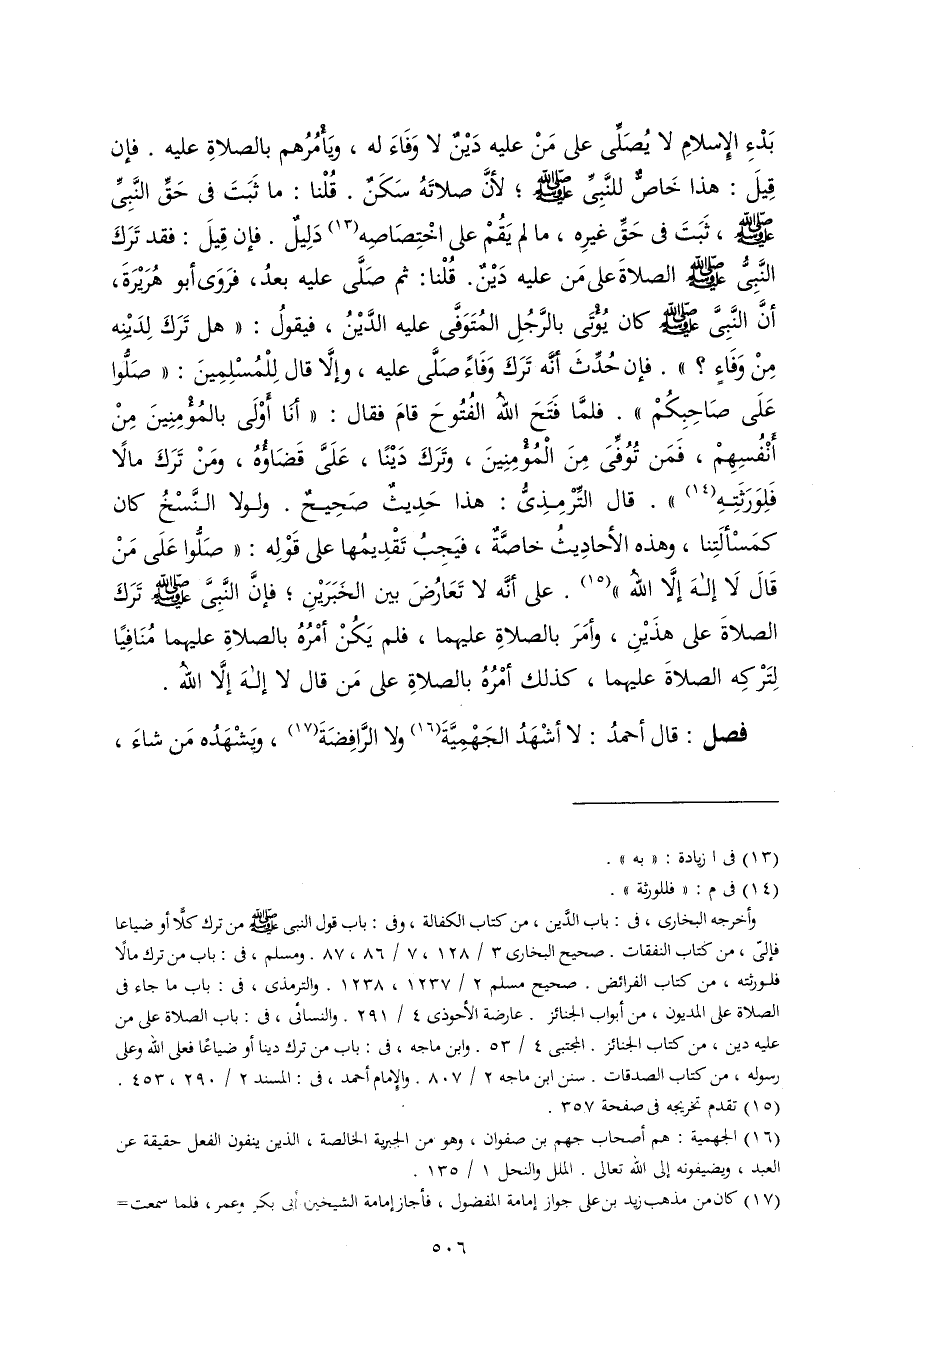 بَدْءِ الإِسلامِ لا يُصَلِّى على مَنْ عليه دَيْنٌ لا وَفَاءَ له ، ويَأْمُرُهم بالصلاةِ عليه . فإن
قِيلَ : هذا خَاصٌّ للنَّبِىِّ ﷺ ؛ لأنَّ صلاتَهُ سَكَنٌ . قُلْنا : ما ثَبَتَ فى حَقِّ النَّبِىِّ
ﷺ ، ثَبَتَ فى حَقِّ غيرِه ، ما لم يَقُمْ على اخْتِصَاصِه(١٣) دَلِيلٌ . فإن قِيلَ : فقد تَرَكَ
النَّبِىُّ ﷺ الصلاةَ على مَن عليه دَيْنٌ. قُلْنا: ثم صَلَّى عليه بعدُ، فرَوَى أبو هُرَيْرَةَ،
أنَّ النَّبِىَّ ﷺ كان يُؤْتَى بالرَّجُلِ المُتَوَفَّى عليه الدَّيْنُ ، فيقولُ : « هل تَرَكَ لِدَيْنِه
مِنْ وَفَاءٍ ؟ » . فإن حُدِّثَ أنَّه تَرَكَ وَفَاءً صَلَّى عليه ، وإلَّا قال لِلْمُسْلِمِينَ : « صَلُّوا
عَلَى صَاحِبِكُمْ » . فلمَّا فَتَحَ اللهُ الفُتُوحَ قامَ فقال : « أنَا أَوْلَى بالمُؤْمِنِينَ مِنْ
أَنْفُسِهِمْ ، فَمَن تُوُفِّىَ مِنَ الْمُؤْمِنِينَ ، وتَرَكَ دَيْنًا ، عَلَىَّ قَضَاؤُهُ ، ومَنْ تَرَكَ مالًا
فَلِوَرَثَتِهِ(١٤) » . قال التِّرْمِذِىُّ : هذا حَدِيثٌ صَحِيحٌ . ولولا النَّسْخُ كان
كمَسْأَلَتِنا ، وهذه الأحاديثُ خاصَّةٌ ، فيَجِبُ تَقْدِيمُها على قَوْلِه : « صَلُّوا عَلَى مَنْ
قَالَ لَا إلـٰهَ إلَّا اللهُ »(١٥) . على أنَّه لا تَعَارُضَ بين الخَبَرَيْنِ ؛ فإنَّ النَّبِىَّ ﷺ تَرَكَ
الصلاةَ على هذَيْنِ ، وأمَرَ بالصلاةِ عليهما ، فلم يَكُنْ أمْرُهُ بالصلاةِ عليهما مُنَافِيًا
لِتَرْكِه الصلاةَ عليهما ، كذلك أمْرُهُ بالصلاةِ على مَن قال لا إلـٰهَ إلَّا اللهُ .
فصل : قال أحمدُ : لا أشْهَدُ الجَهْمِيَّةَ(١٦) ولا الرَّافِضَةَ(١٧) ، ويَشْهَدُه مَن شاءَ ،
(١٣) فى ا زيادة : « به » .
(١٤) فى م : « فللورثة » .
وأخرجه البخارى ، فى : باب الدَّين ، من كتاب الكفالة ، وفى : باب قول النبى ﷺ من ترك كلًّا أو ضياعا
فإلىّ ، من كتاب النفقات . صحيح البخارى ٣ / ١٢٨ ، ٧ / ٨٦ ، ٨٧ . ومسلم ، فى : باب من ترك مالًا
فلورثته ، من كتاب الفرائض . صحيح مسلم ٢ / ١٢٣٧ ، ١٢٣٨ . والترمذى ، فى : باب ما جاء فى
الصلاة على المديون ، من أبواب الجنائز . عارضة الأحوذى ٤ / ٢٩١ . والنسائى ، فى : باب الصلاة على من
عليه دين ، من كتاب الجنائز . المجتبى ٤ / ٥٣ . وابن ماجه ، فى : باب من ترك دينا أو ضياعًا فعلى الله وعلى
رسوله ، من كتاب الصدقات . سنن ابن ماجه ٢ / ٨٠٧ . والإمام أحمد ، فى : المسند ٢ / ٢٩٠ ، ٤٥٣ .
(١٥) تقدم تخريجه فى صفحة ٣٥٧ .
(١٦) الجهمية : هم أصحاب جهم بن صفوان ، وهو من الجبرية الخالصة ، الذين ينفون الفعل حقيقة عن
العبد ، ويضيفونه إلى الله تعالى . الملل والنحل ١ / ١٣٥ .
(١٧) كان من مذهب زيد بن على جواز إمامة المفضول ، فأجاز إمامة الشيخين أبى بكر وعمر ، فلما سمعت=
٥٠٦